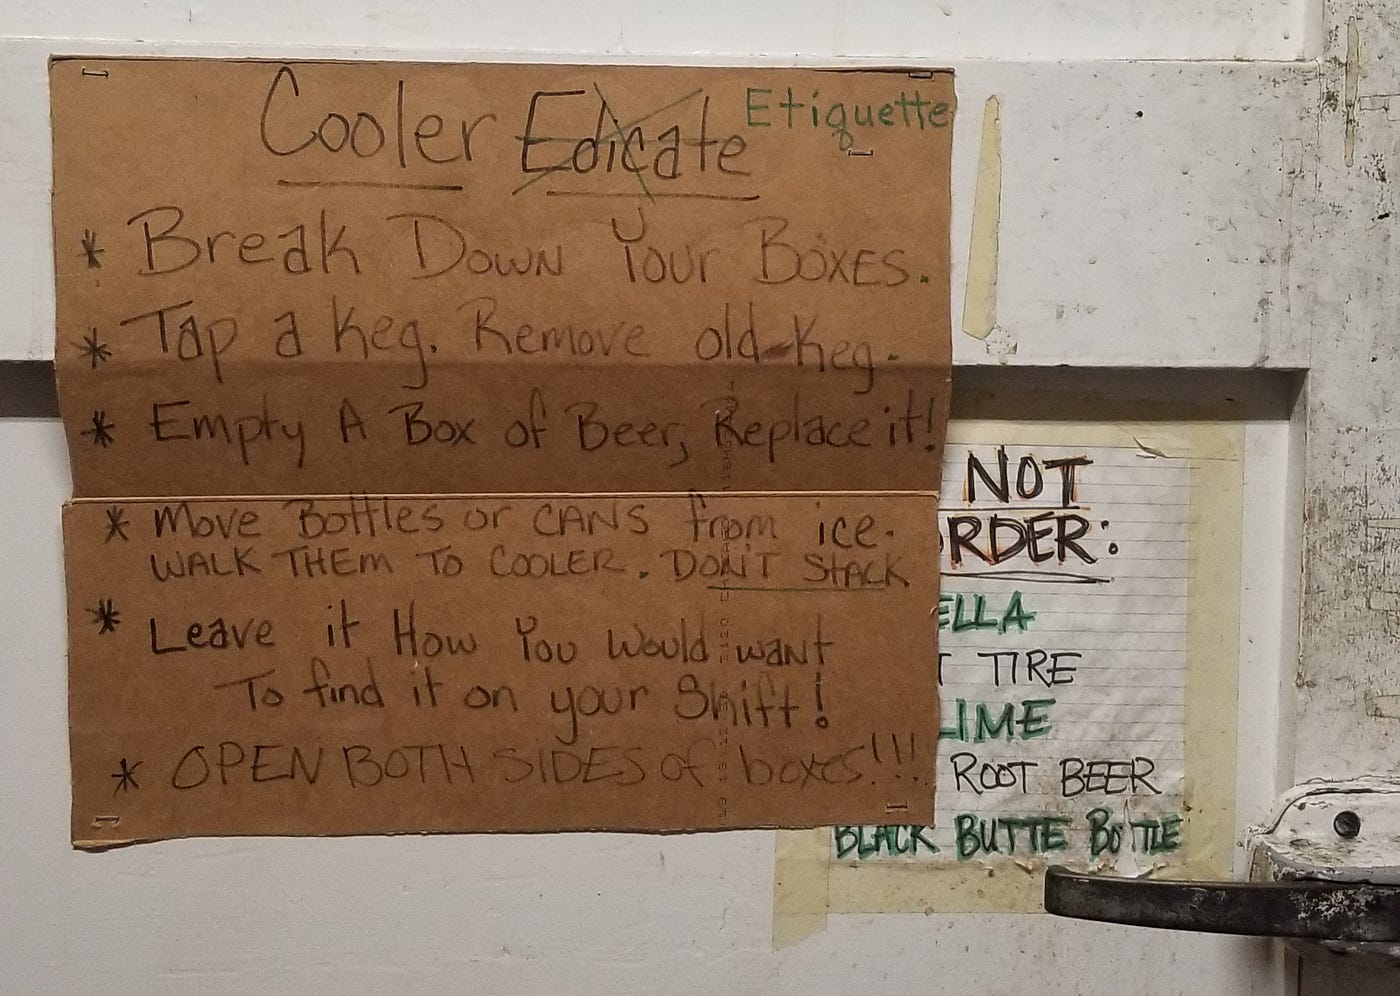 Cooler Edicate Etiquette
* Break Down Your Boxes.
* Tap a Keg. Remove old Keg.
* Empty A Box of Beer, Replace it!
* Move Bottles or CANS from ice.
WALK THEM TO COOLER. DON'T STACK
* Leave it How You Would want
To find it on your Shift!
* OPEN BOTH SIDES of boxes!!!
NOT
RDER:
ELLA
T TIRE
LIME
ROOT BEER
BLACK BUTTE BOTTLE